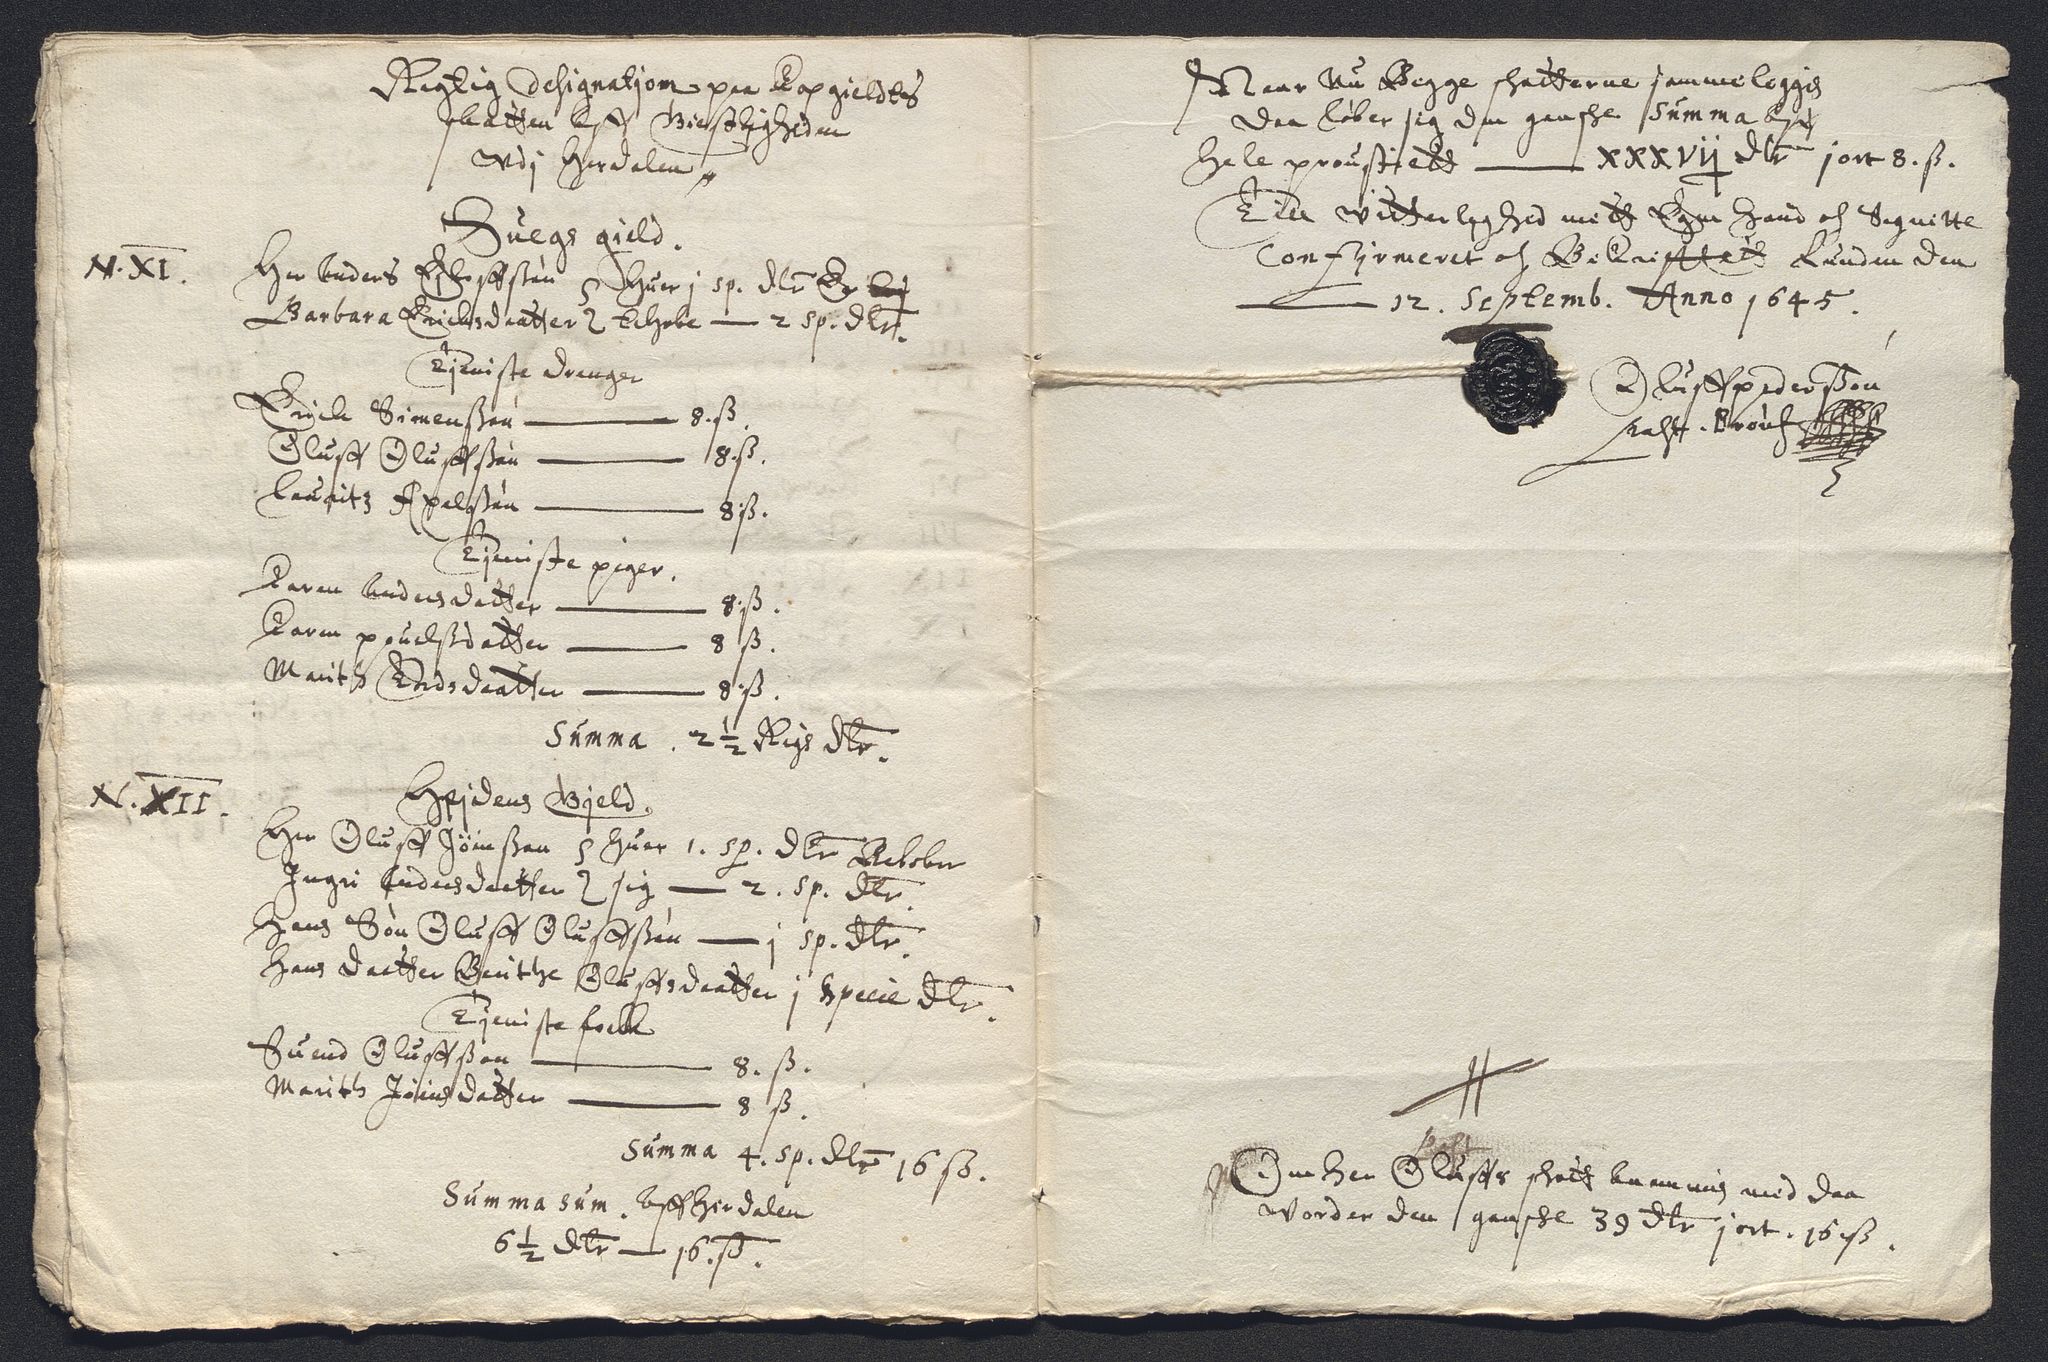 Rigtig Designatjon paa Kopgieldtes
skatten Aff Giestligheden
Vdj Herdalen
Suegs gield.
N. XI.
Her Anders ß huer j sp. dlr Er
Barbara Erichsdaatter 2 sp. dlr.
Tjeniste drenger
Erich Simenßøn — 8. ß.
Oluff Oluffßøn — 8. ß.
Lauritz Axelßøn — 8. ß.
Tjeniste piger.
Karen Andersdatter — 8. ß.
Karen pouelsdatter — 8 ß.
Marith daatter — 8. ß.
Summa . 2 1/2 Rigs dlr.
N. XII.
Hejdens Gjeld.
Her Oluff Jönßøn huer 1. sp. dlr Beløber
Ingri Andersdaatter sig — 2. sp. dlr.
Hans Søn Oluff Oluffßøn — j sp. dlr.
Hans daatter Berithe Oluffsdaatter j specie dlr.
Tjeniste folk
Suend Oluffßøn — 8. ß.
Marith Jönsdatter — 8 ß.
Summa 4. sp. dlr 16 ß.
Summa sum. Aff Herdalen
6 1/2 dlr — 16. ß.
Naar Nu Begge skatterne sammeleggis
daa løber sig den gansche Summa Aff
hele proustiett — XXXVij dlr j ort 8. ß.
Till Vitterlighed mett Egen haand och Signitte
Confirmeret och Bekrefftett Lunden den
— 12. Septemb. Anno 1645.
Oluff pederßøn
Om Her Oluffs skatt ammis med daa
vorder den gansche 39 dlr j ort. 16 ß.